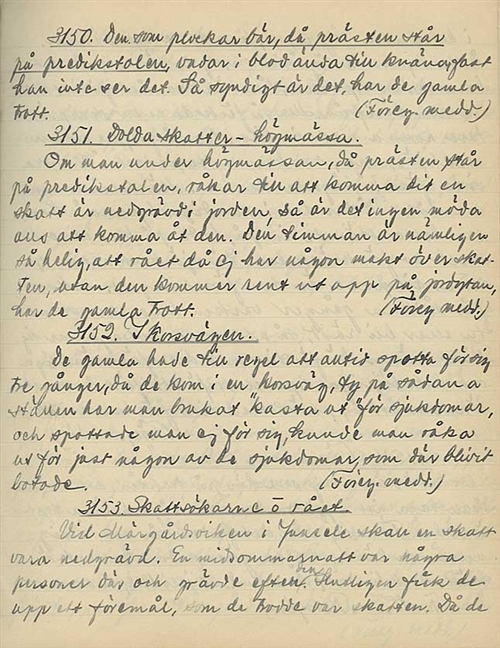 3150. Den som plockar bär, då prästen står
på predikstolen, vadar i blod ända till knäna, fast
han inte ser det. Så syndigt är det, har de gamla
trott. (Föreg. medd.)
3151. Dolda skatter - högmässa.
Om man under högmässan, då prästen står
på predikstolen, råkar till att komma dit en
skatt är nedgrävd i jorden, så är det ingen möda
alls att komma åt den. Den timman är nämligen
så helig, att rået då ej har någon makt över skat-
ten, utan den kommer rent ut upp på jordytan,
har de gamla trott. (Föreg. medd.)
3152. I korsvägen.
De gamla hade till regel att alltid spotta för sig
tre gånger, då de kom i en korsväg, ty på sådana
ställen har man brukat "kasta ut" för sjukdomar,
och spottade man ej för sig, kunde man råka
ut för just någon av de sjukdomar, som där blivit
botade. (Föreg. medd.)
3153 Skattsökarne o rået.
Vid Mårgårdsviken i Junsele skall en skatt
vara nedgrävd. En midsommarnatt var några
personer där och grävde efter den. Slutligen fick de
upp ett föremål, som de trodde var skatten. Då de